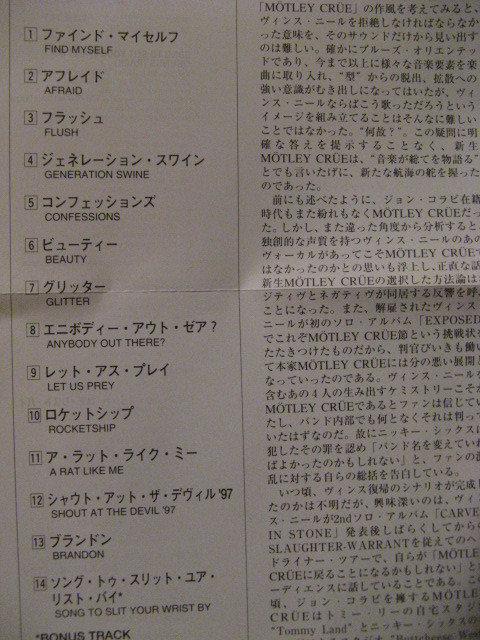 1 ファインド・マイセルフ
FIND MYSELF
2 アフレイド
AFRAID
3 フラッシュ
FLUSH
4 ジェネレーション・スワイン
GENERATION SWINE
5 コンフェッションズ
CONFESSIONS
6 ビューティー
BEAUTY
7 グリッター
GLITTER
8 エニボディー・アウト・ゼア？
ANYBODY OUT THERE?
9 レット・アス・プレイ
LET US PREY
10 ロケットシップ
ROCKETSHIP
11 ア・ラット・ライク・ミー
A RAT LIKE ME
12 シャウト・アット・ザ・デヴィル'97
SHOUT AT THE DEVIL '97
13 ブランドン
BRANDON
14 ソング・トゥ・スリット・ユア・
リスト・バイ*
SONG TO SLIT YOUR WRIST BY
*BONUS TRACK
「MÖTLEY CRÜE」の作風を考えてみると、
ヴィンス・ニールを拒絶しなければならなか
った意味を、そのサウンドだけから見い出す
のは難しい。確かにブルーズ・オリエンテッ
ドであり、今まで以上に様々な音楽要素を楽
曲に取り入れ、“型”からの脱出、拡散への
強い意識がむき出しになってはいたが、ヴィ
ンス・ニールならばこう歌っただろうという
イメージを組み立てることはそんなに難しい
ことではなかった。“何故？”。この疑問に明
確な答えを提示することなく、新生
MÖTLEY CRÜEは、“音楽が総てを物語る”
とでも言いたげに、新たな航海の舵を握った
のであった。
前にも述べたように、ジョン・コラビ在籍
時代もまた紛れもなくMÖTLEY CRÜEだっ
た。しかし、また違った角度から分析すると、
独創的な声質を持つヴィンス・ニールのあの
ヴォーカルがあってこそMÖTLEY CRÜEで
はなかったのかとの思いも浮上し、正直な話、
新生MÖTLEY CRÜEの選択した方法論は
ジティヴとネガティヴが同居する反響を呼ぶ
ことになった。また、解雇されたヴィンス・
ニールが初のソロ・アルバム「EXPOSED
でこれぞMÖTLEY CRÜE節という挑戦状を
たたきつけたものだから、判官びいきも働い
て本家MÖTLEY CRÜEには分の悪い展開と
なっていったのである。ヴィンス・ニールを
含むあの4人の生み出すケミストリーこそが
MÖTLEY CRÜEであるとファンは信じてい
たし、バンド内部でも何となくそれは判って
いたはずなのだ。故にニッキー・シックスは
犯したその罪を認め「バンド名を変えていれ
ばよかったのかもしれない」と、ファンの混
乱に対する自らの総括を告白している。
いつ頃、ヴィンス復帰のシナリオが完成し
たのかは不明だが、興味深いのは、ヴィ
ス・ニールが2ndソロ・アルバム「CARVE
IN STONE」発表後しばらくしてから
SLAUGHTER-WARRANTを従えてのヘ
ドライナー・ツアーで、自らが「MÖTLE
CRÜEに戻ることになるかもしれない」と
ーディエンスに話していることである。こ
頃、ジョン・コラビを擁するMÖTLEY
CRÜEはトミー・リーの自宅スタジ
“Tommy Land”とニッキー・シックスの